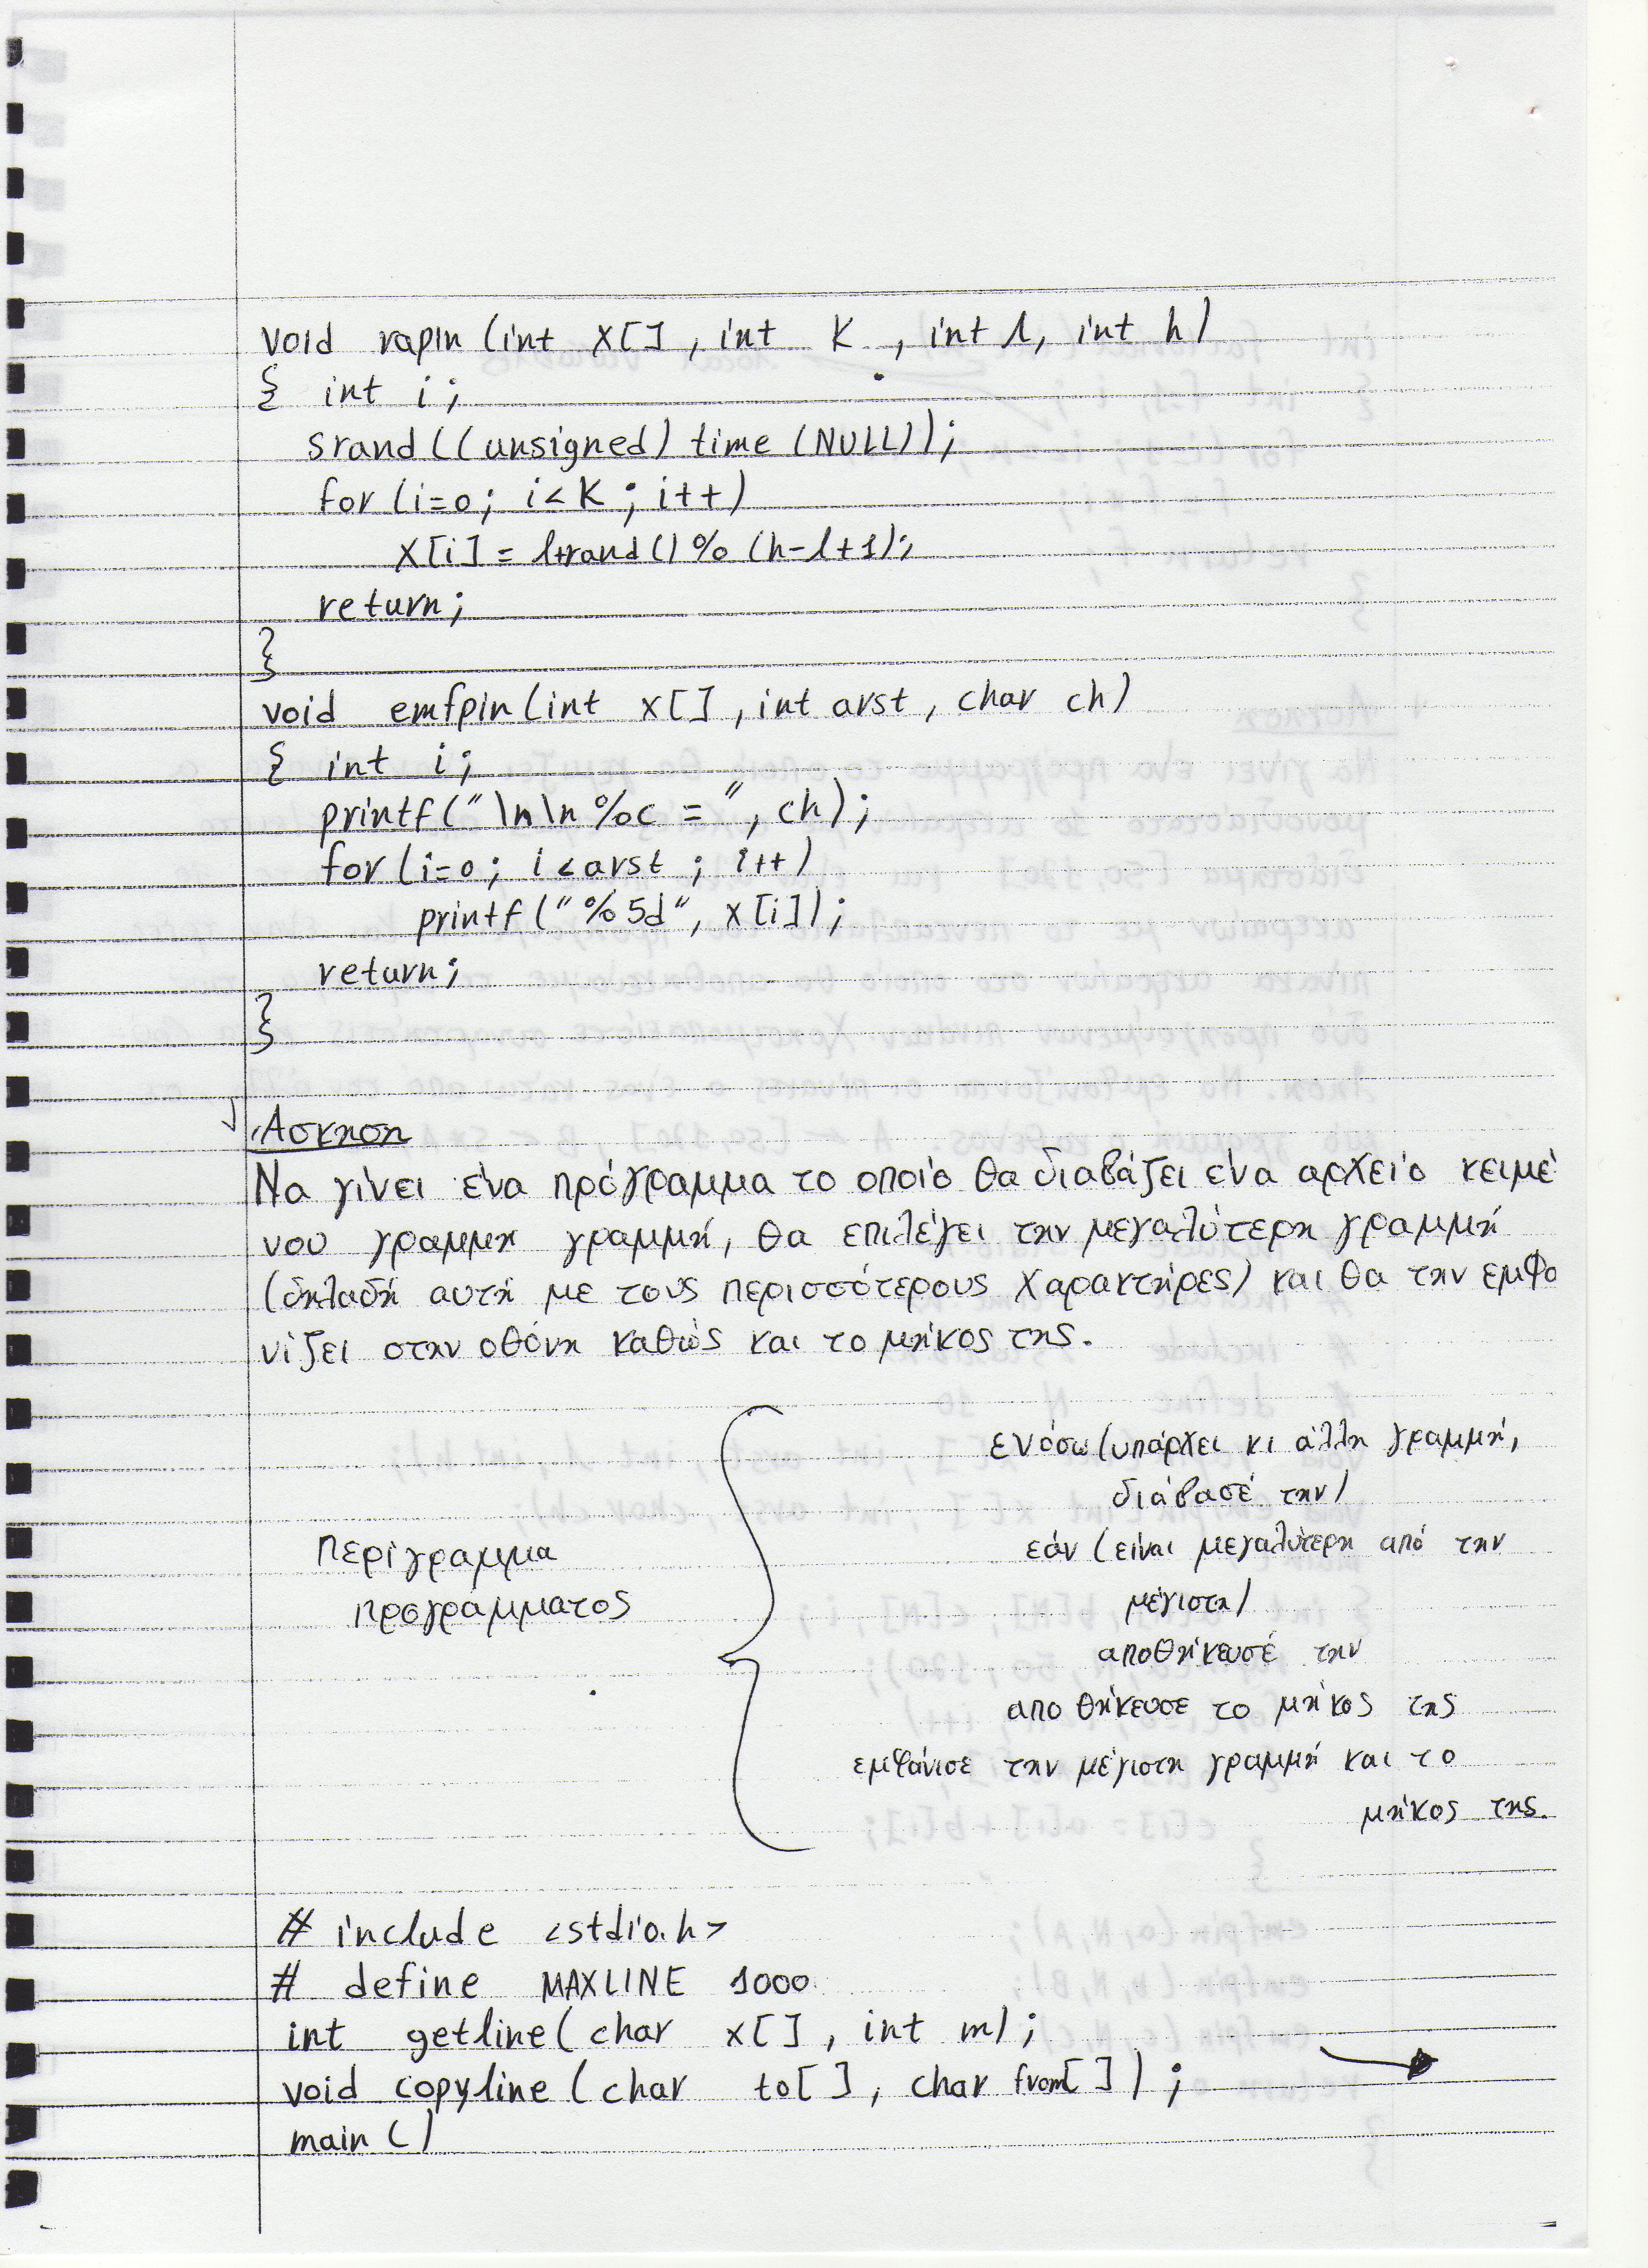 void rapin (int x[] , int k , int l, int h)
{ int i ;
srand ((unsigned) time (NULL));
for (i=0; i<k ; i++)
x[i] = l+rand()%(h-l+1);
return;
}
void emfpin(int x[] , int arst , char ch)
{ int i;
printf("\n\n %c = ", ch);
for (i=0; i<arst ; i++)
printf("%5d", x[i]);
return;
}
Άσκηση
Να γίνει ένα πρόγραμμα το οποίο θα διαβάζει ένα αρχείο κειμέ
νου γραμμη γραμμή, θα επιλέγει την μεγαλύτερη γραμμή
(δηλαδή αυτή με τους περισσότερους χαρακτήρες) και θα την εμφα
νίζει στην οθόνη καθώς και το μήκος της.
περίγραμμα
προγράμματος
ενόσω (υπάρχει κι άλλη γραμμή,
διάβασέ την)
εάν (είναι μεγαλύτερη από την
μέγιστη)
αποθήκευσέ την
αποθήκευσε το μήκος της
εμφάνισε την μέγιστη γραμμή και το
μήκος της.
# include <stdio.h>
# define MAXLINE 1000
int getline( char x[] , int m) ;
void copyline ( char to[ ] , char from[ ] ) ;
main ()